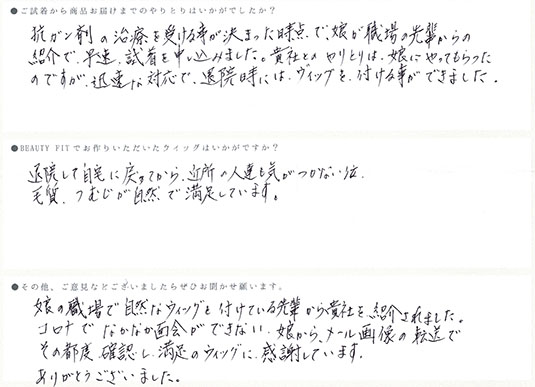 ●ご試着から商品お届けまでのやりとりはいかがでしたか?
抗ガン剤の治療を受ける事が決まった時点で娘が職場の先輩からの
紹介で、早速、試着を申し込みました。貴社とのやりとりは、娘にやってもらった
のですが、迅速な対応で、退院時には、ウィッグを、付ける事ができました。
●BEAUTY FITでお作りいただいたウイッグはいかがですか?
退院して自宅に戻ってから、近所の人達も気がつかない位、
毛質、つむじが自然で満足しています。
●その他、ご意見などございましたらぜひお聞かせ願います。
娘の職場で自然なウィッグを付けている先輩から貴社を、紹介されました。
コロナでなかなか面会ができない、娘から、メール画像の転送で
その都度、確認し、満足のウィッグに、感謝しています。
ありがとうございました。